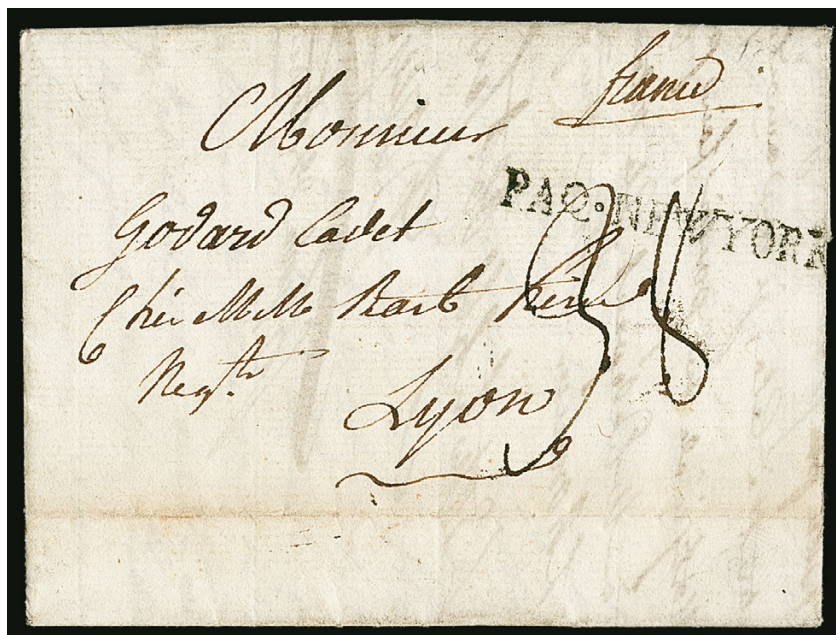 france
Monsieur
PAQ. NEW YORK
Godard Cadet
Chez MM
Negts.
Lyon
38